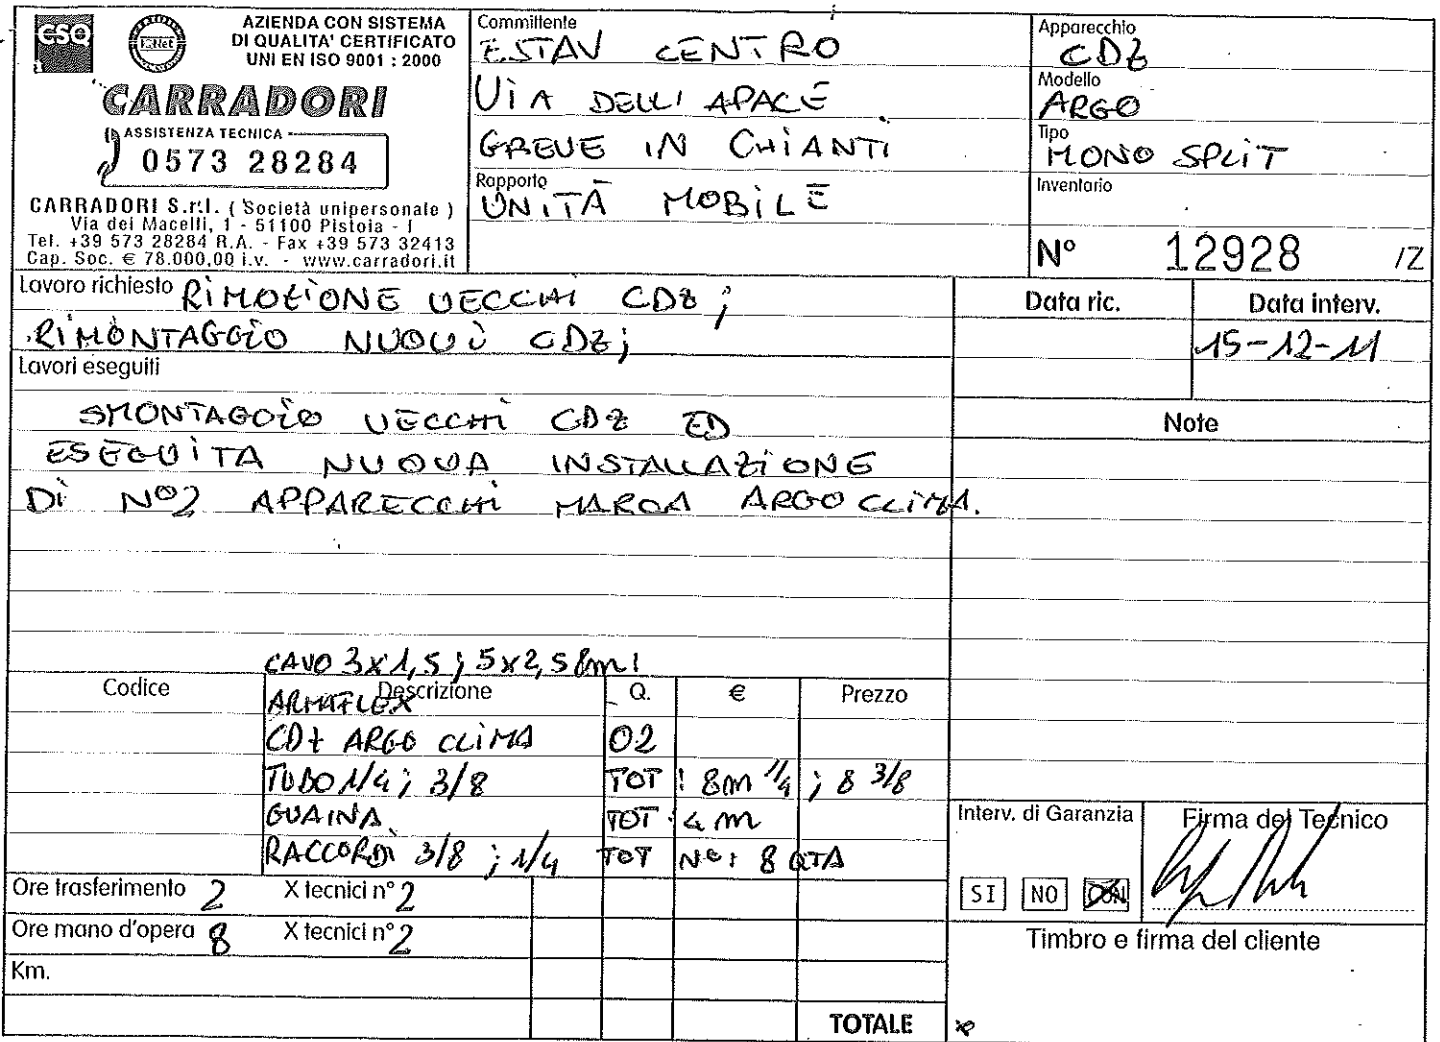 CSQ
IQNet
AZIENDA CON SISTEMA
DI QUALITA' CERTIFICATO
UNI EN ISO 9001 : 2000
CARRADORI
ASSISTENZA TECNICA
0573 28284
CARRADORI S.r.l. ( Società unipersonale )
Via dei Macelli, 1 - 51100 Pistoia - I
Tel. +39 573 28284 R.A. - Fax +39 573 32413
Cap. Soc. € 78.000,00 i.v. - www.carradori.it
Committente
ESTAV CENTRO
VIA DELLI APACE
GREVE IN CHIANTI
Rapporto
UNITÀ MOBILE
Apparecchio
CDZ
Modello
ARGO
Tipo
MONO SPLIT
Inventario
N° 12928 /Z
Lavoro richiesto RIMOZIONE VECCHI CDZ ;
RIMONTAGGIO NUOVI CDZ;
Data ric.
Data interv.
15-12-11
Lavori eseguiti
SMONTAGGIO VECCHI CDZ ED
ESEGUITA NUOVA INSTALLAZIONE
DI N°2 APPARECCHI MARCA ARGO CLIMA.
Note
CAVO 3x1,5 ; 5x2,5 8m!
Codice Descrizione Q. € Prezzo
ARMAFLEX
CDZ ARGO CLIMA 02
TUBO 1/4 ; 3/8 TOT : 8m 1/4 ; 8 3/8
GUAINA TOT : 4 m
RACCORDI 3/8 ; 1/4 TOT N°: 8 QTA
Ore trasferimento 2 X tecnici n° 2
Ore mano d'opera 8 X tecnici n° 2
Km.
TOTALE
Interv. di Garanzia
SI NO CON
Firma del Tecnico
Timbro e firma del cliente